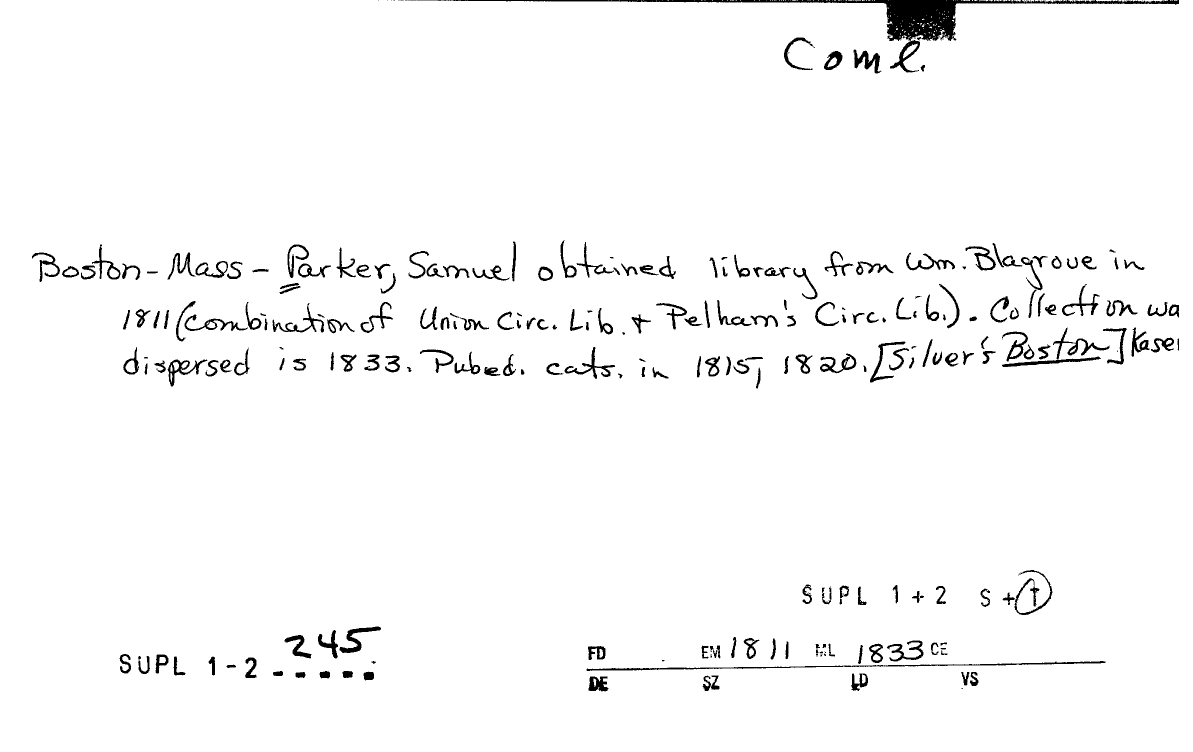 Coml.
Boston-Mass- Parker, Samuel obtained library from Wm. Blagrove in
1811 (combination of Union Circ. Lib. + Pelham's Circ. Lib.). Collection wa
dispersed is 1833. Pubed. cats. in 1815, 1820. [Silver's Boston] Kaser
SUPL 1+2 S + T
SUPL 1-2 245
FD EM 1811 ML 1833 CE
DE SZ LD VS